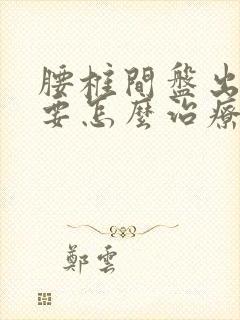 腰柱間盤出
要怎麼治療
鄭雲